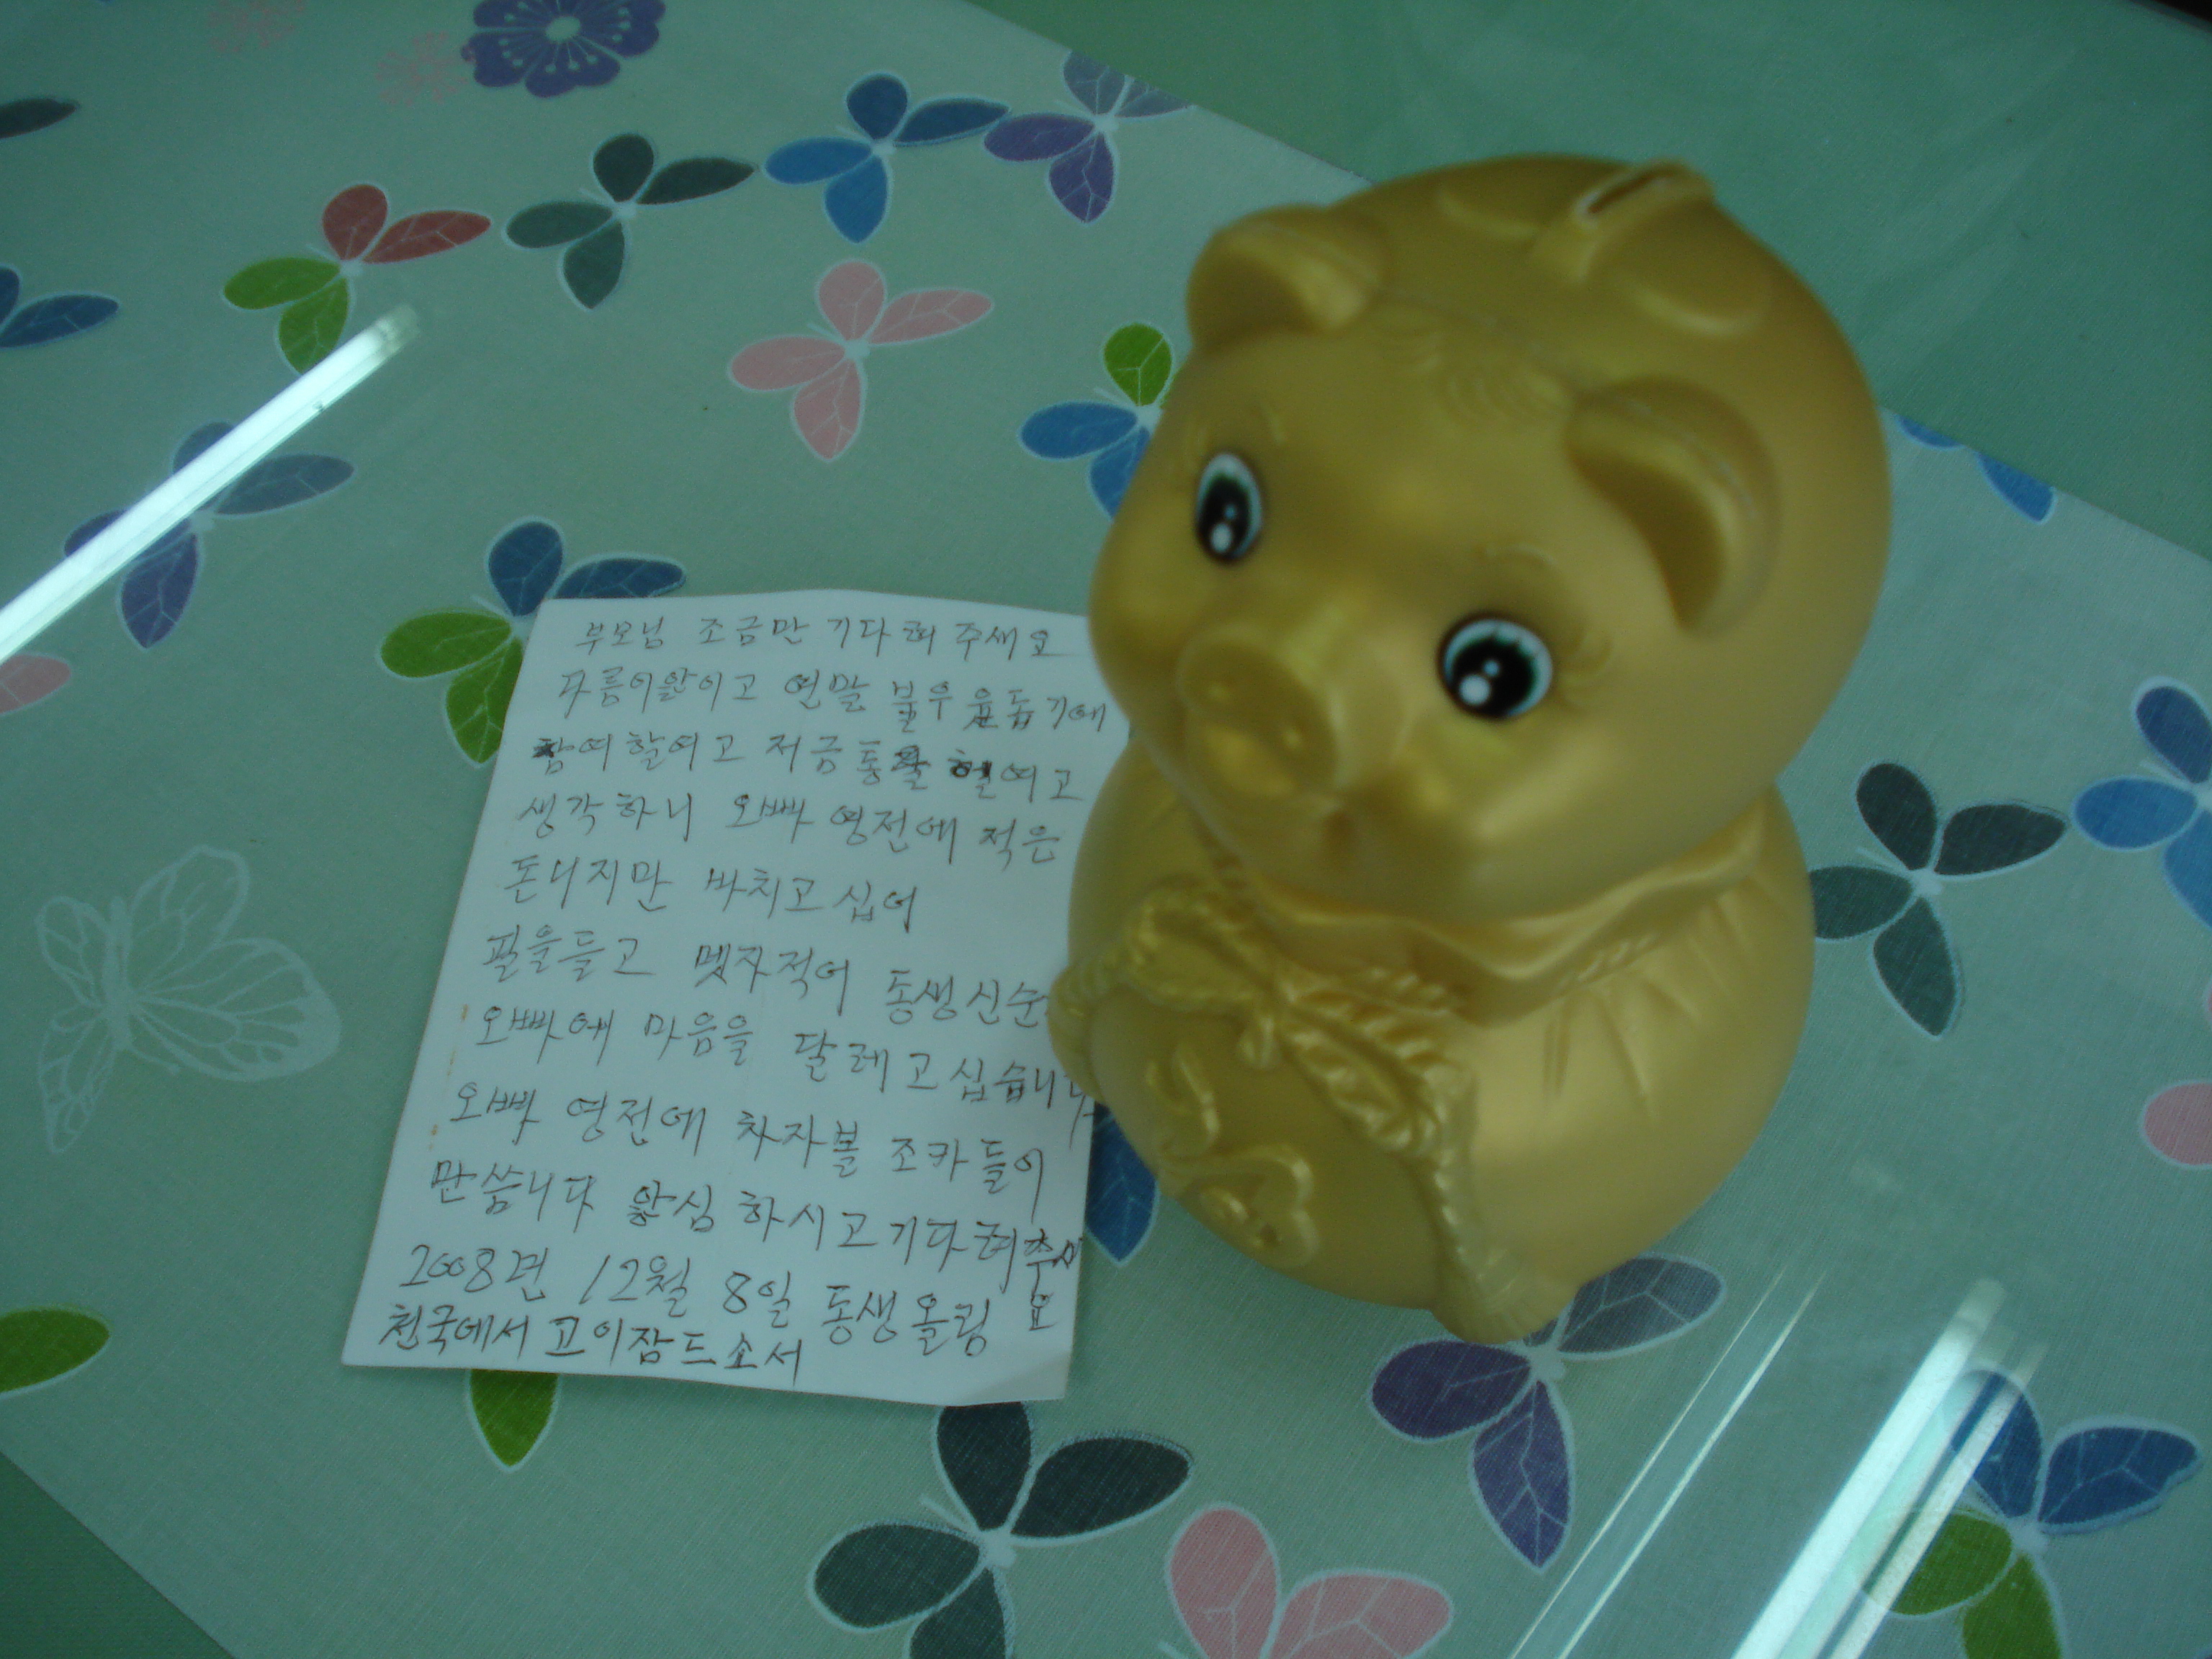 부모님 조금만 기다려 주세요
다름이않이고 연말 불우 윤돕기에
참여할여고 저금통을 헐여고
생각하니 오빠 영전에 적은
돈니지만 바치고 십어
필을들고 몟자적어 동생신순
오빠에 마음을 달레고 십습니다
오빠 영전에 차자볼 조카들이
만씀니다 않심 하시고 기다려 주시
요
2008면 12월 8일 동생 올림
천국에서 고이잠드소서